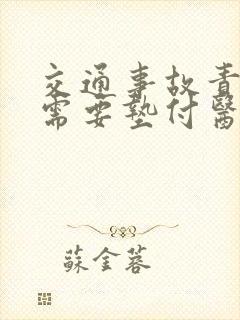 交通事故責
需要墊付醫
蘇金蓉